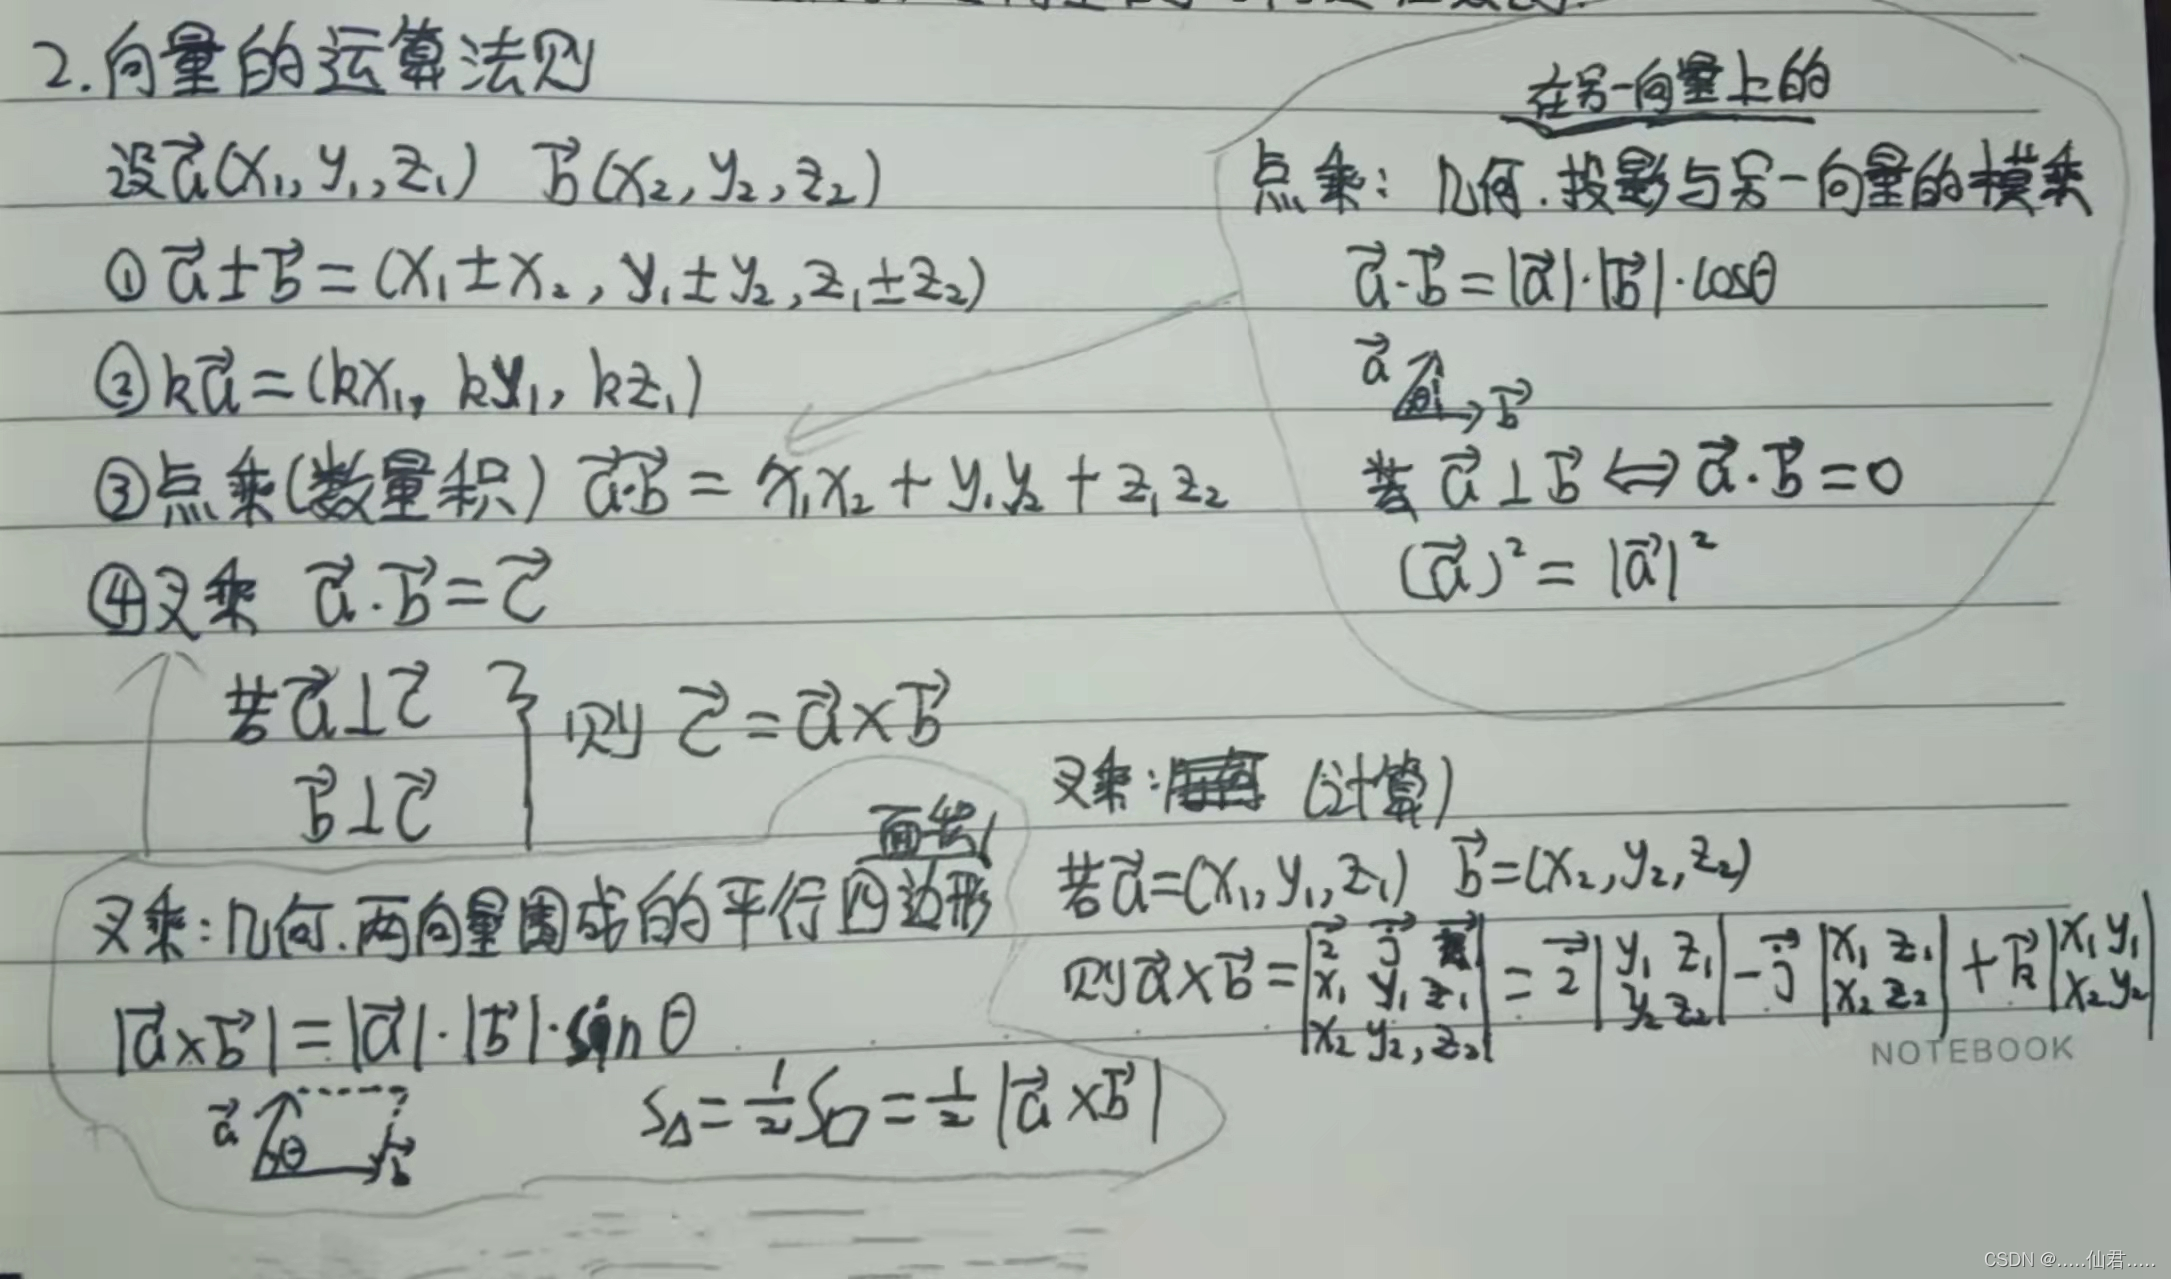 2.向量的运算法则
设a⃗(x₁,y₁,z₁) b⃗(x₂,y₂,z₂)
①a⃗±b⃗=(x₁±x₂,y₁±y₂,z₁±z₂)
②ka⃗=(kx₁,ky₁,kz₁)
③点乘(数量积) a⃗·b⃗=x₁x₂+y₁y₂+z₁z₂
④叉乘 a⃗·b⃗=c⃗
若a⃗⊥c⃗
b⃗⊥c⃗
} 则 c⃗=a⃗×b⃗
在另一向量上的
点乘: 几何.投影与另一向量的模乘
a⃗·b⃗=|a⃗|·|b⃗|·cosθ
a⃗
b⃗
若 a⃗⊥b⃗⇔a⃗·b⃗=0
(a⃗)²=|a⃗|²
面积
叉乘:几何.两向量围成的平行四边形
|a⃗×b⃗|=|a⃗|·|b⃗|·sinθ
a⃗ θ b⃗
S△=½S▱=½|a⃗×b⃗|
叉乘: (计算)
若a⃗=(x₁,y₁,z₁) b⃗=(x₂,y₂,z₂)
则a⃗×b⃗=|i⃗ j⃗ k⃗; x₁ y₁ z₁; x₂ y₂, z₂|=i⃗|y₁ z₁; y₂ z₂|-j⃗|x₁ z₁; x₂ z₂|+k⃗|x₁ y₁; x₂ y₂|
NOTEBOOK
CSDN @.....仙君.....